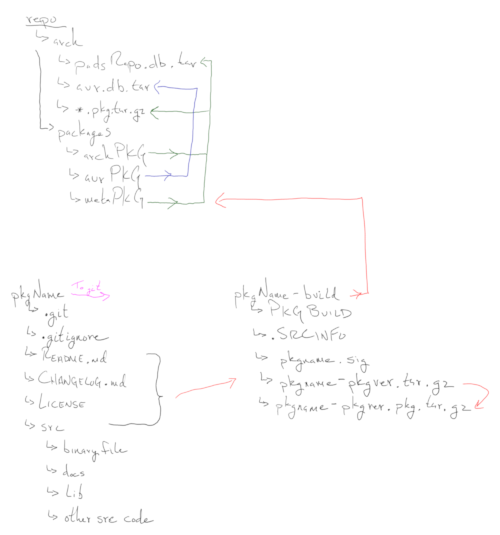 repo
↳ arch
↳ padsRepo.db.tar
↳ aur.db.tar
↳ *.pkg.tar.gz
↳ packages
↳ archPKG
↳ aurPKG
↳ metaPKG
pkgName
Target
↳ .git
↳ .gitignore
↳ README.md
↳ CHANGELOG.md
↳ LICENSE
↳ src
↳ binary.file
↳ docs
↳ Lib
↳ other src code
pkgName-build
↳ PKGBUILD
↳ .SRCINFO
↳ pkgname.sig
↳ pkgname-pkgver.tar.gz
↳ pkgname-pkgver.pkg.tar.gz